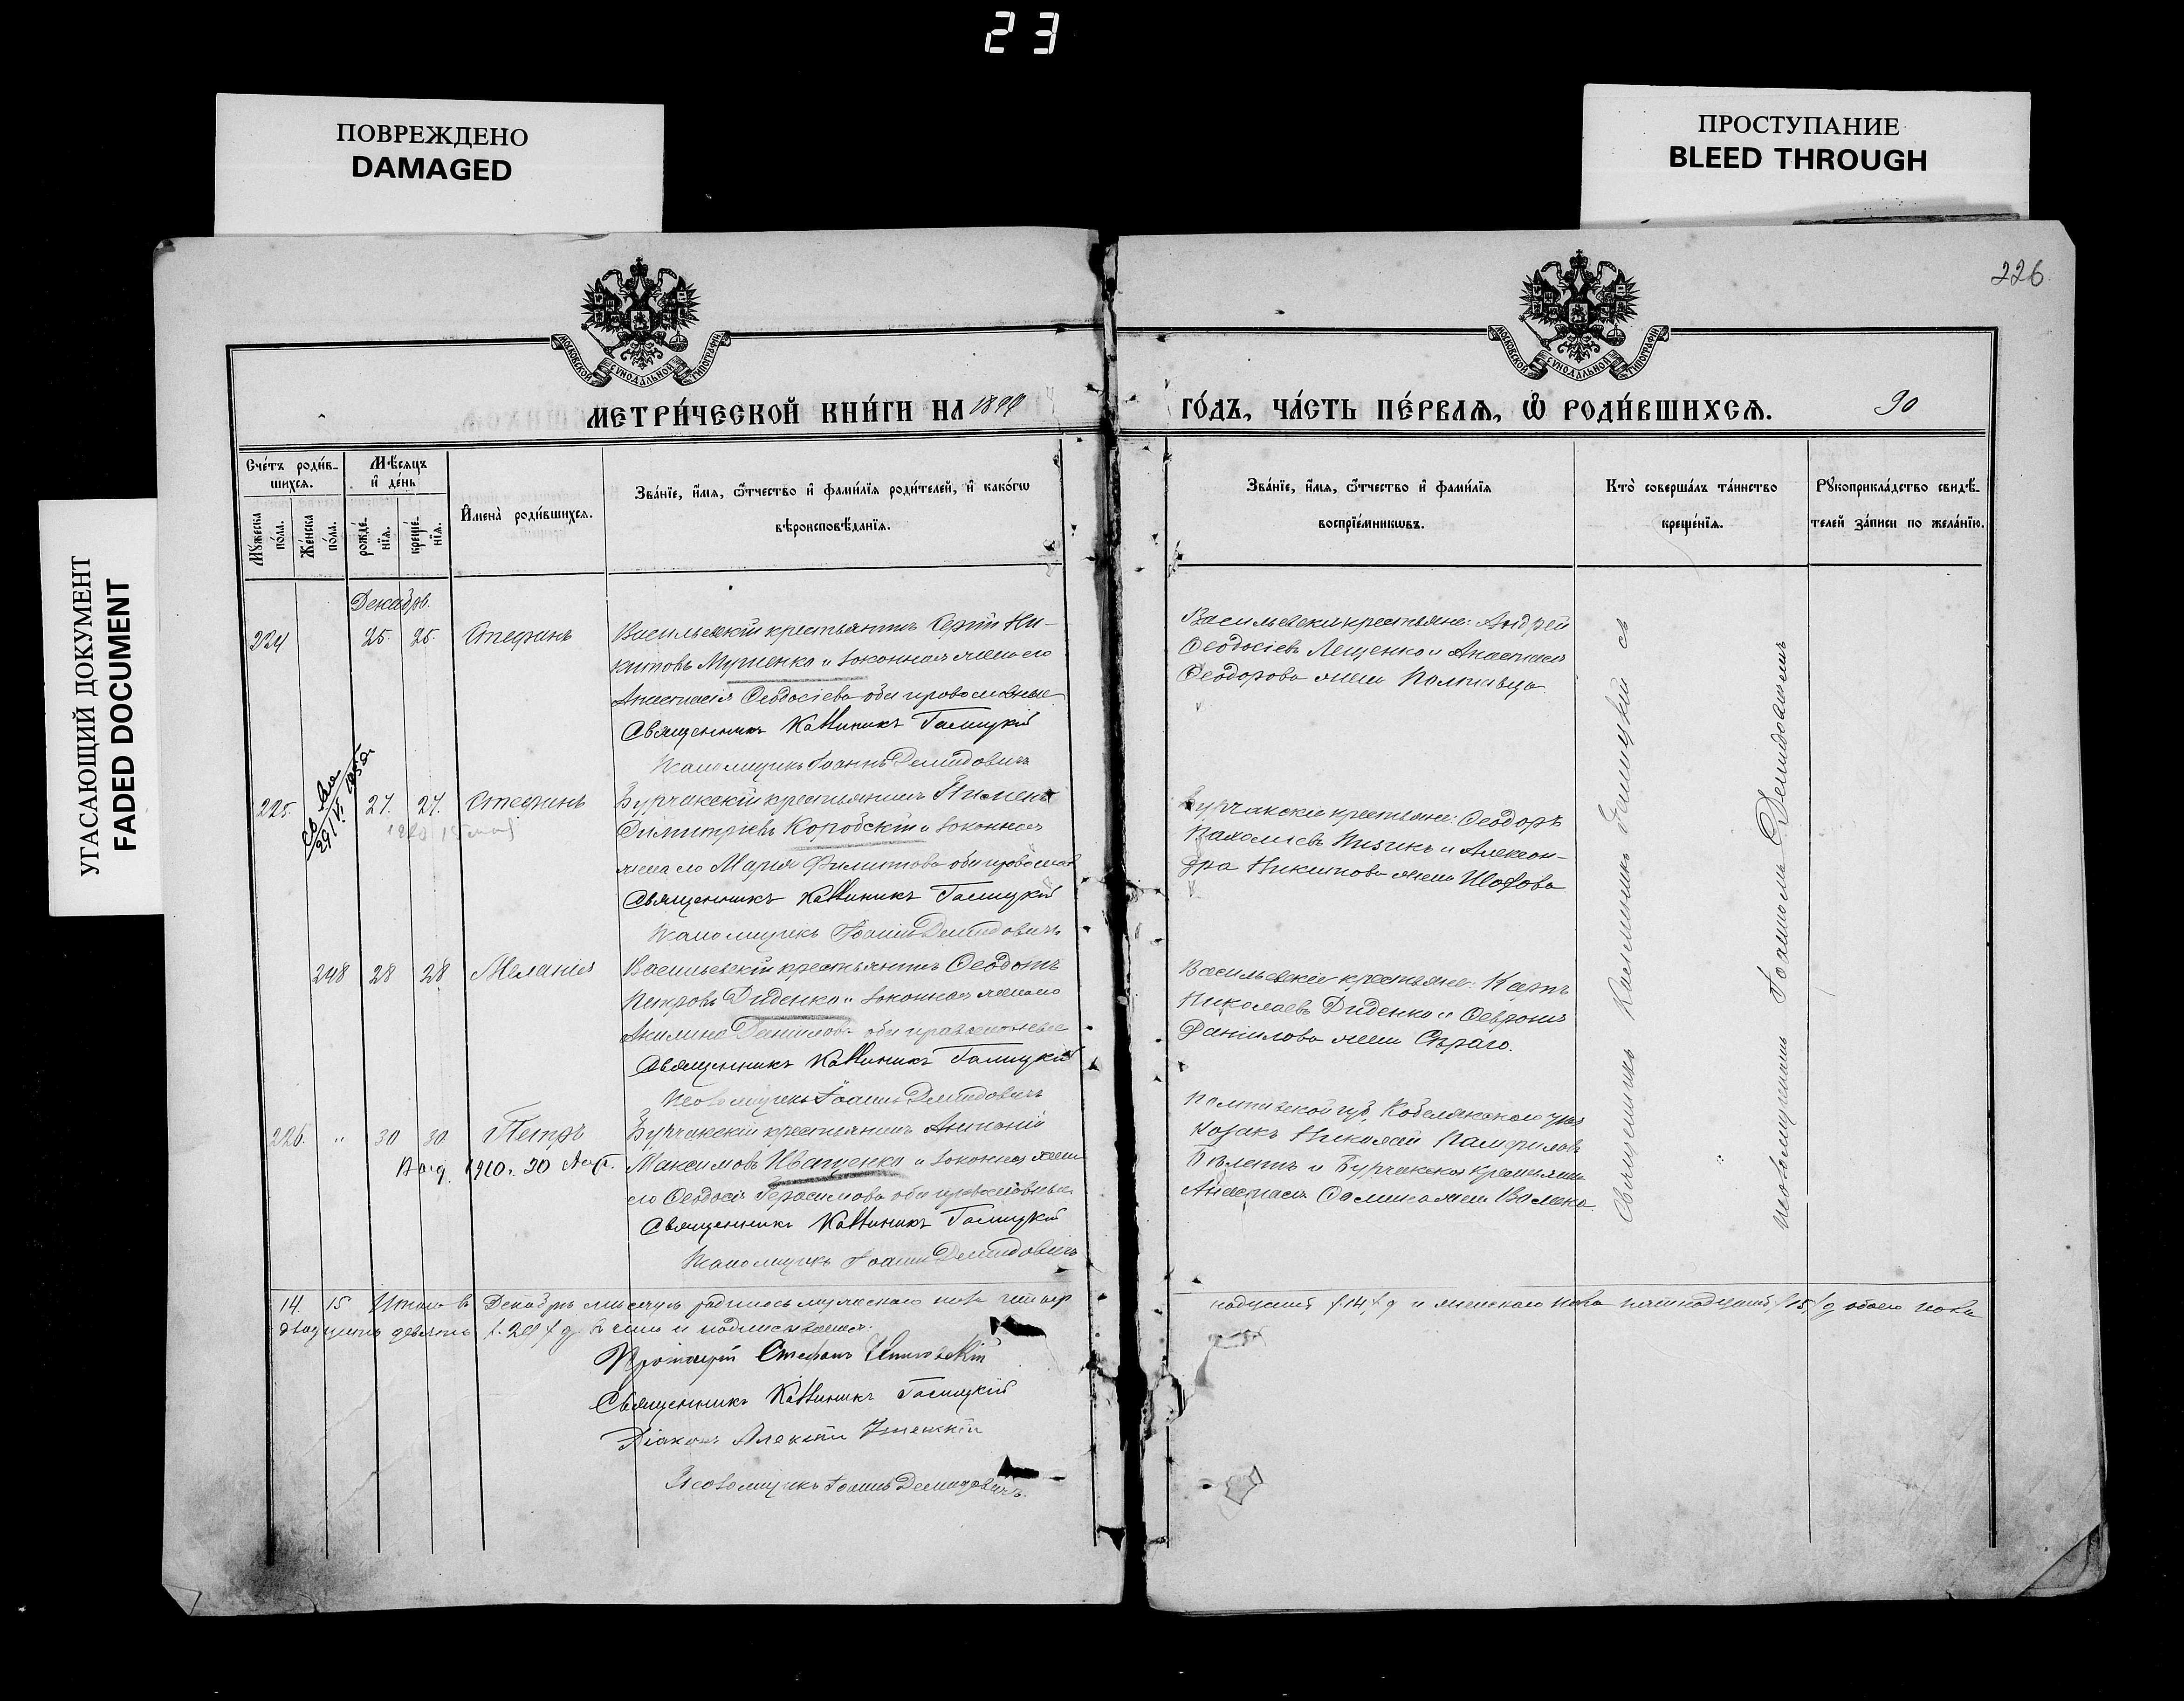 23
ПОВРЕЖДЕНО
DAMAGED
ПРОСТУПАНИЕ
BLEED THROUGH
УГАСАЮЩИЙ ДОКУМЕНТ
FADED DOCUMENT
226
МОСКОВСКОЙ СУНОДАЛЬНОЙ ТИПОГРАФІИ
МОСКОВСКОЙ СУНОДАЛЬНОЙ ТИПОГРАФІИ
МЕТРИ́ЧЕСКОЙ КНИ́ГИ НА 1899
ГО́ДЪ, ЧА́СТЬ ПЕ́РВАѦ, Ѽ РОДИ́ВШИХСѦ.
90
Сче́тъ роди́в-
шихсѧ.
Мꙋ́жеска по́ла.
Же́нска по́ла.
Мѣ́сѧцъ
и҆ де́нь
рожде́-
нїѧ.
креще́-
нїѧ.
И҆мена̀ роди́вшихсѧ.
Зва́нїе, и҆́мѧ, ѻ҆́тчество и҆ фами́лїѧ роди́телей, и҆ како́гѡ
вѣроисповѣ́данїѧ.
Зва́нїе, и҆́мѧ, ѻ҆́тчество и҆ фами́лїѧ
воспрїе́мникѡвъ.
Кто̀ соверша́лъ та́инство
креще́нїѧ.
Рꙋкоприкла́дство свидѣ́-
телей за́писи по жела́нїю.
Декабрь.
224 25. 25. Стефанъ
Васильевскій крестьянинъ Сергій Ни-
китовъ и законная жена его
Анастасія Ѳеодосіева оба православные
Священникъ Каллиникъ Галицкій
Псаломщикъ Іоаннъ Демидовичъ
Васильевскіе крестьяне: Андрей
Ѳеодосіевъ Лещенко и Анастасія
Ѳеодорова жена Полтавца
225. 27. 27. Стефанъ
29/V.
Бурчакскій крестьянинъ Пименъ
Димитріевъ Коробскій и законная
жена его Марія Филиппова оба православ
Священникъ Каллиникъ Галицкій
Псаломщикъ Іоаннъ Демидовичъ
Бурчакскіе крестьяне: Ѳеодоръ
и Алексан-
дра Никитова жена
248 28 28 Меланія
Васильевскій крестьянинъ Ѳеодотъ
Петровъ Диденко и законная жена его
Акилина Данилова оба православные
Священникъ Каллиникъ Галицкій
Псаломщикъ Іоаннъ Демидовичъ
Васильевскіе крестьяне: Карпъ
Николаевъ Диденко и Ѳевронія
Данилова жена Сѣраго.
226. " 30 30. Петръ
Выд. 1910 г. 20 Апр.
Бурчакскій крестьянинъ Антоній
Максимовъ Иващенко и законная жена
его Ѳеодосія Герасимова оба православные
Священникъ Каллиникъ Галицкій
Псаломщикъ Іоаннъ Демидовичъ
Полтавской губ. Кобелякскаго уѣз
козакъ Николай Памфиловъ
и Бурчакская крестьянка
Анастасія жена
Священникъ Каллиникъ Галицкій съ
псаломщикомъ Іоанномъ Демидовичемъ
14. 15 Итого въ Декабрѣ мѣсяцѣ родилось мужескаго пола четыр
надцать /.14./ д и женскаго пола пятнадцать /.15./ д обоего пола
двадцать девять /.29./ д. въ чемъ и подписываемся.
Протоіерей Стефанъ
Священникъ Каллиникъ Галицкій
Діаконъ Алексій
Псаломщикъ Іоаннъ Демидовичъ.